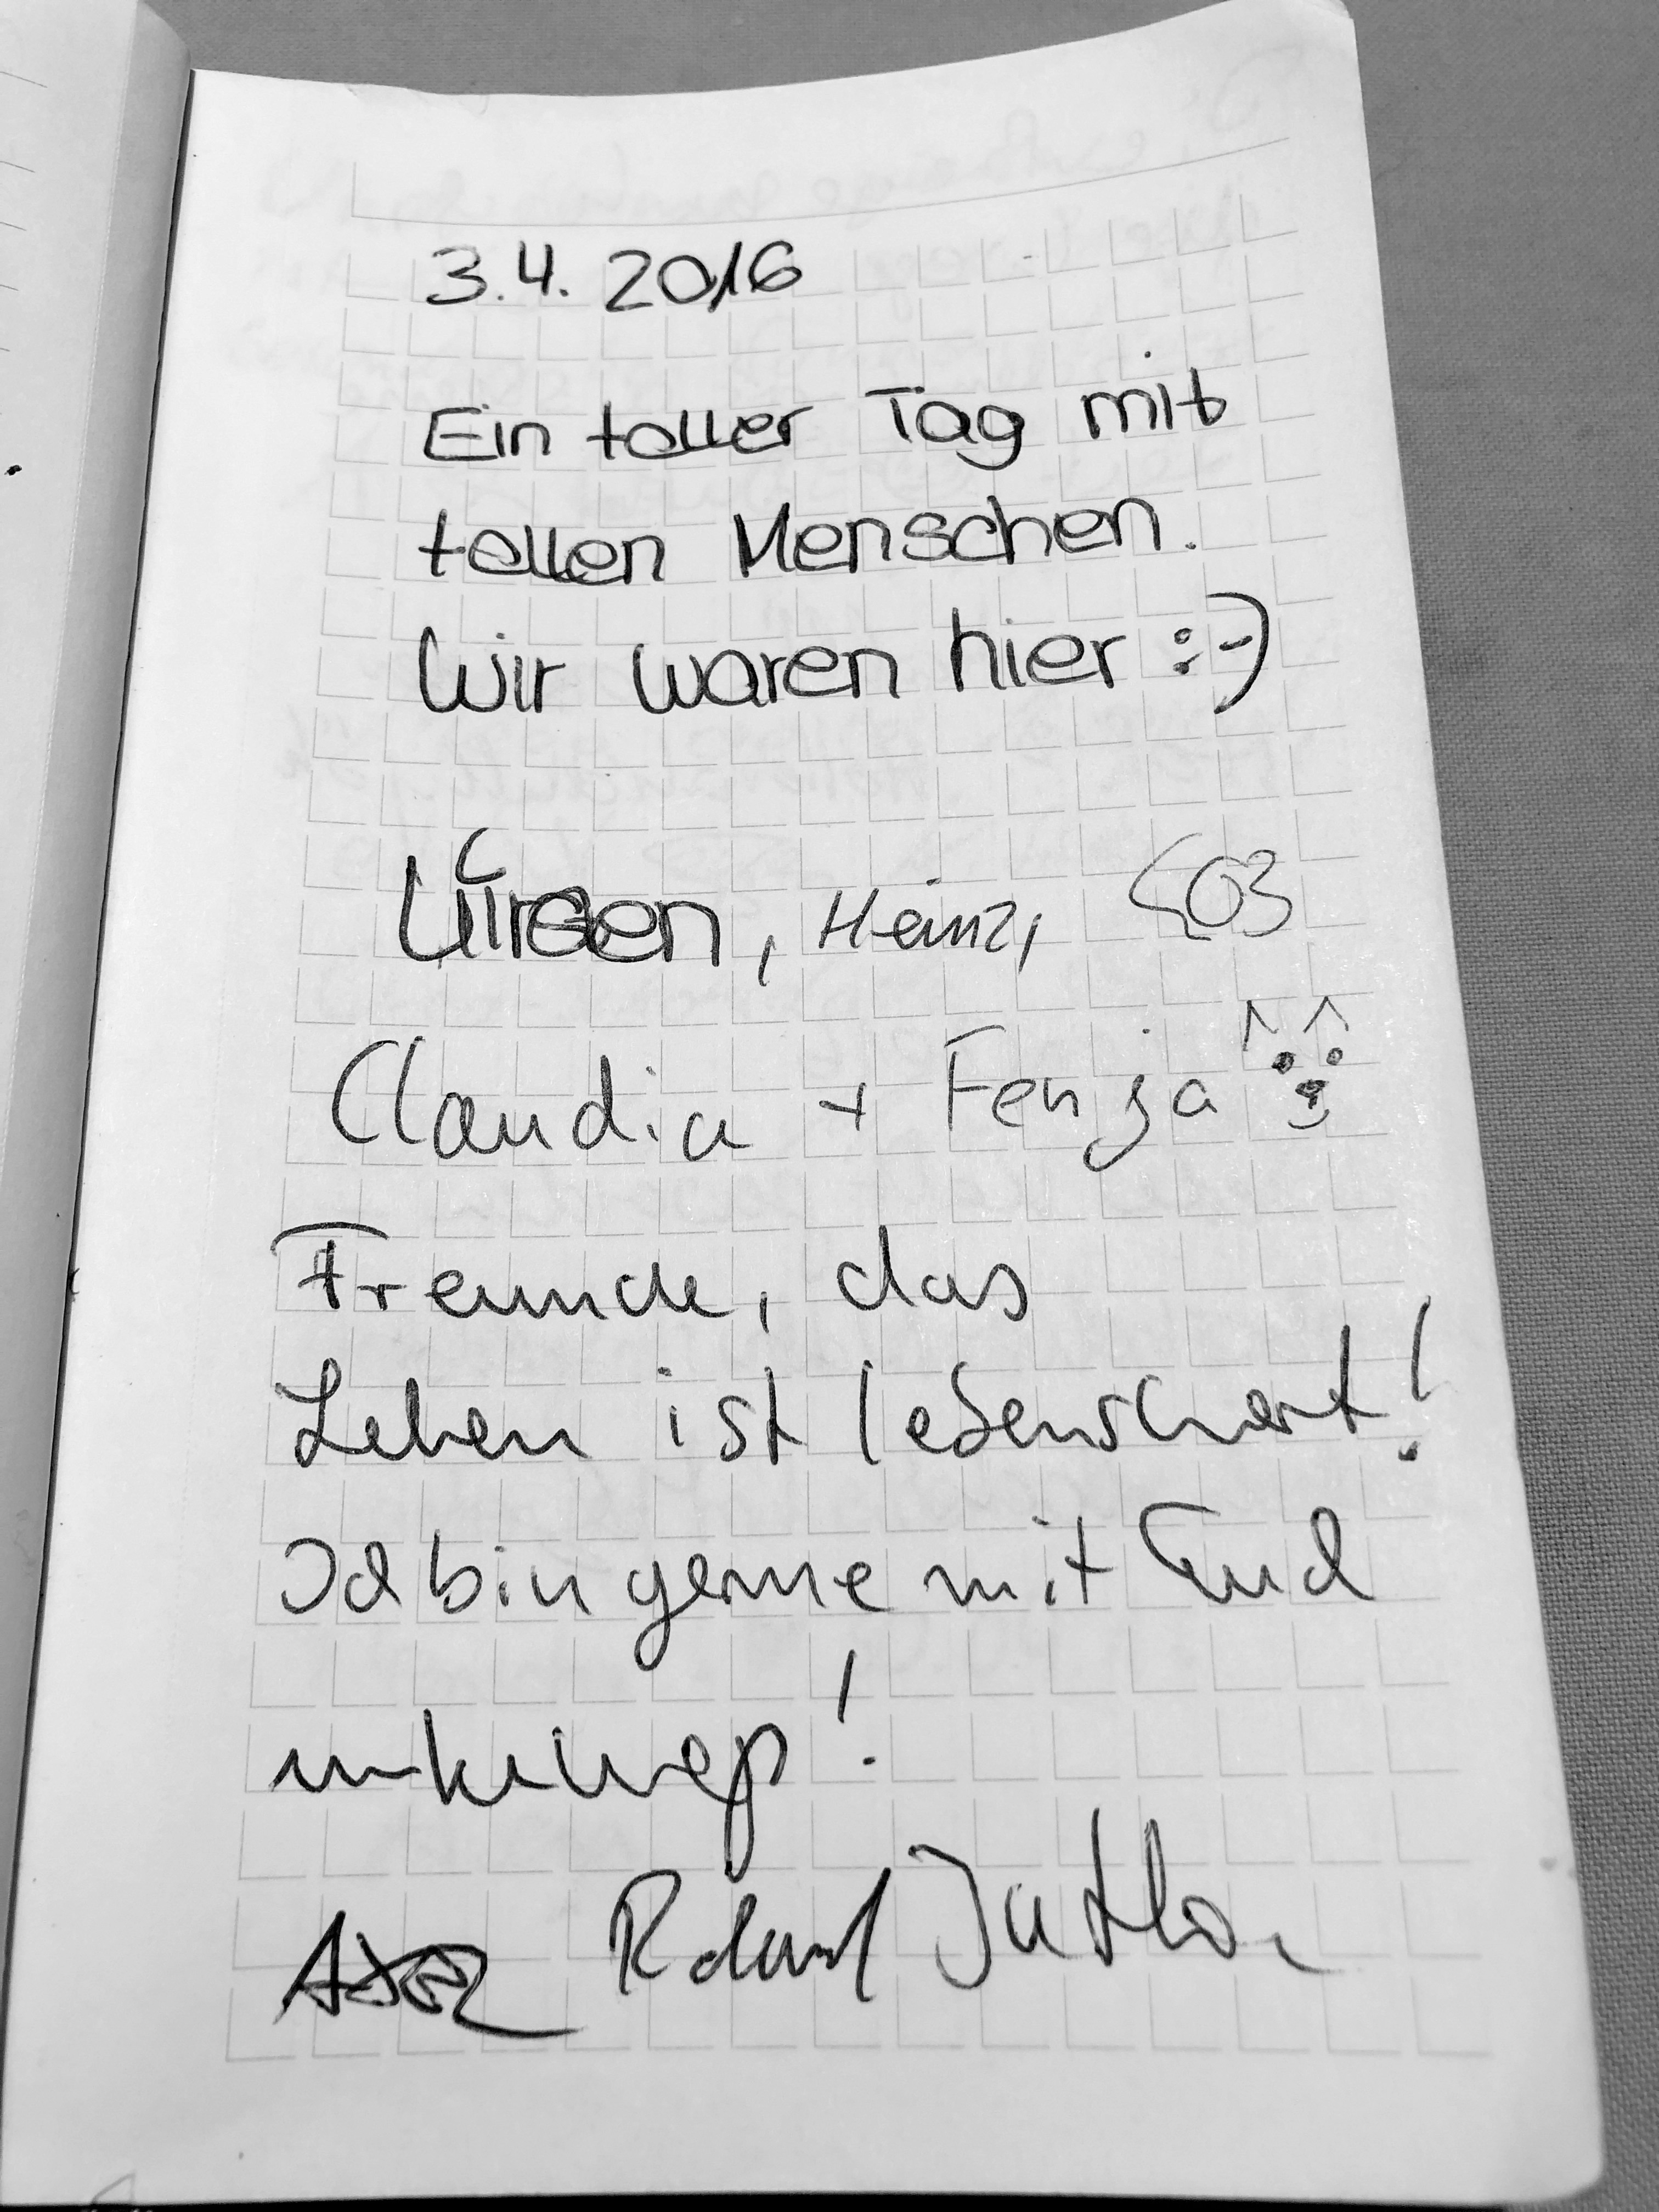 3.4. 2016
Ein toller Tag mit
tollen Menschen.
Wir waren hier :-)
Jürgen, Heinz,
Claudia + Fenja
Freunde, das
Leben ist lebenswert!
Ich bin gerne mit Euch
unterwegs!
Axel Roland